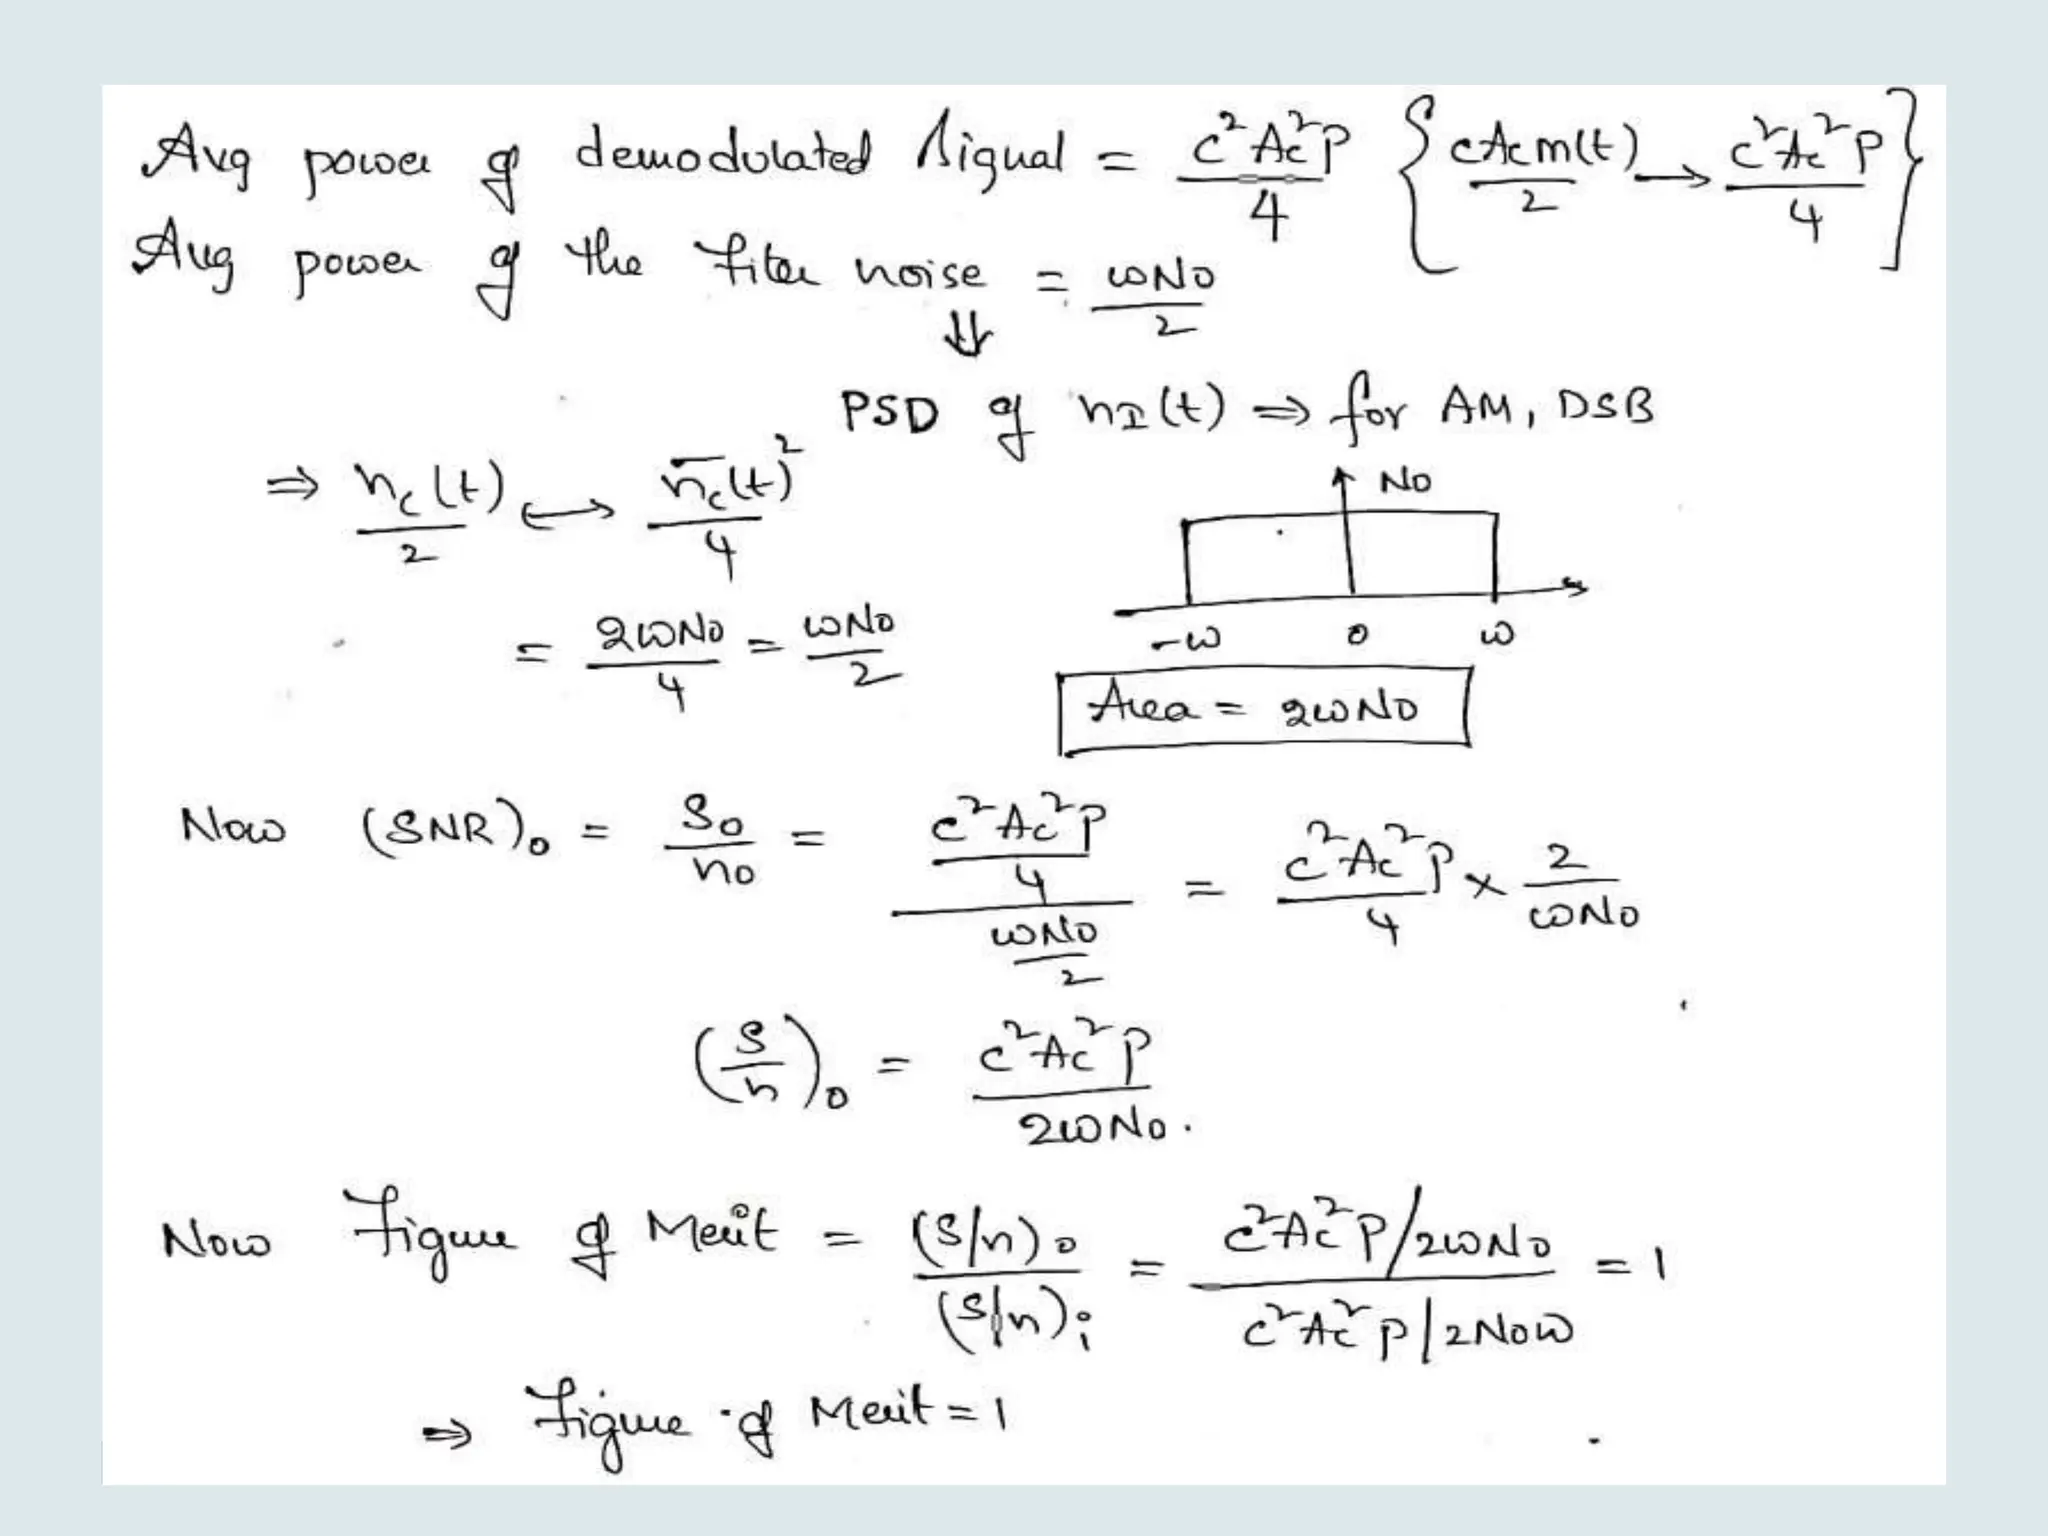 Avg power of demodulated signal = c²Ac²P/4 { cAcm(t)/2 → c²Ac²P/4 }
Avg power of the filter noise = ωN0/2
⇓
PSD of nI(t) ⇒ for AM, DSB
⇒ nc(t)/2 ↔ n̅c(t)²/4
N0
= 2ωN0/4 = ωN0/2
-ω 0 ω
Area = 2ωN0
Now (SNR)0 = S0/n0 = (c²Ac²P/4)/(ωN0/2) = c²Ac²P/4 × 2/ωN0
(S/n)0 = c²Ac²P/2ωN0.
Now Figure of Merit = (S/n)0/(S/n)i = (c²Ac²P/2ωN0)/(c²Ac²P/2N0ω) = 1
⇒ Figure of Merit = 1